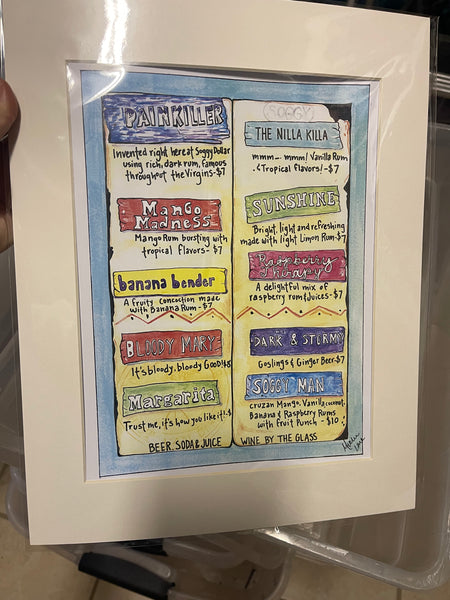 PAINKILLER
Invented right here at Soggy Dollar
using rich, dark rum, famous
throughout the Virgins-$7
Mango
Madness
Mango Rum bursting with
tropical flavors-$7
banana bender
A fruity concoction made
with Banana Rum-$7
BLOODY MARY
It's bloody, bloody GOOD!
Margarita
Trust me, it's how you like it!
BEER, SODA & JUICE
SOGGY
THE NILLA KILLA
mmm-mmm! Vanilla Rum
& Tropical flavors!-$7
SUNSHINE
Bright, light and refreshing
made with light Limon Rum-$7
Raspberry
Therapy
A delightful mix of
raspberry rom & Juices-$7
DARK & STORMY
Goslings & Ginger Beer-$7
SOGGY MAN
cruzan Mango, Vanilla, coconut,
Banana & Raspberry Rums
with fruit Punch-$10
WINE BY THE GLASS